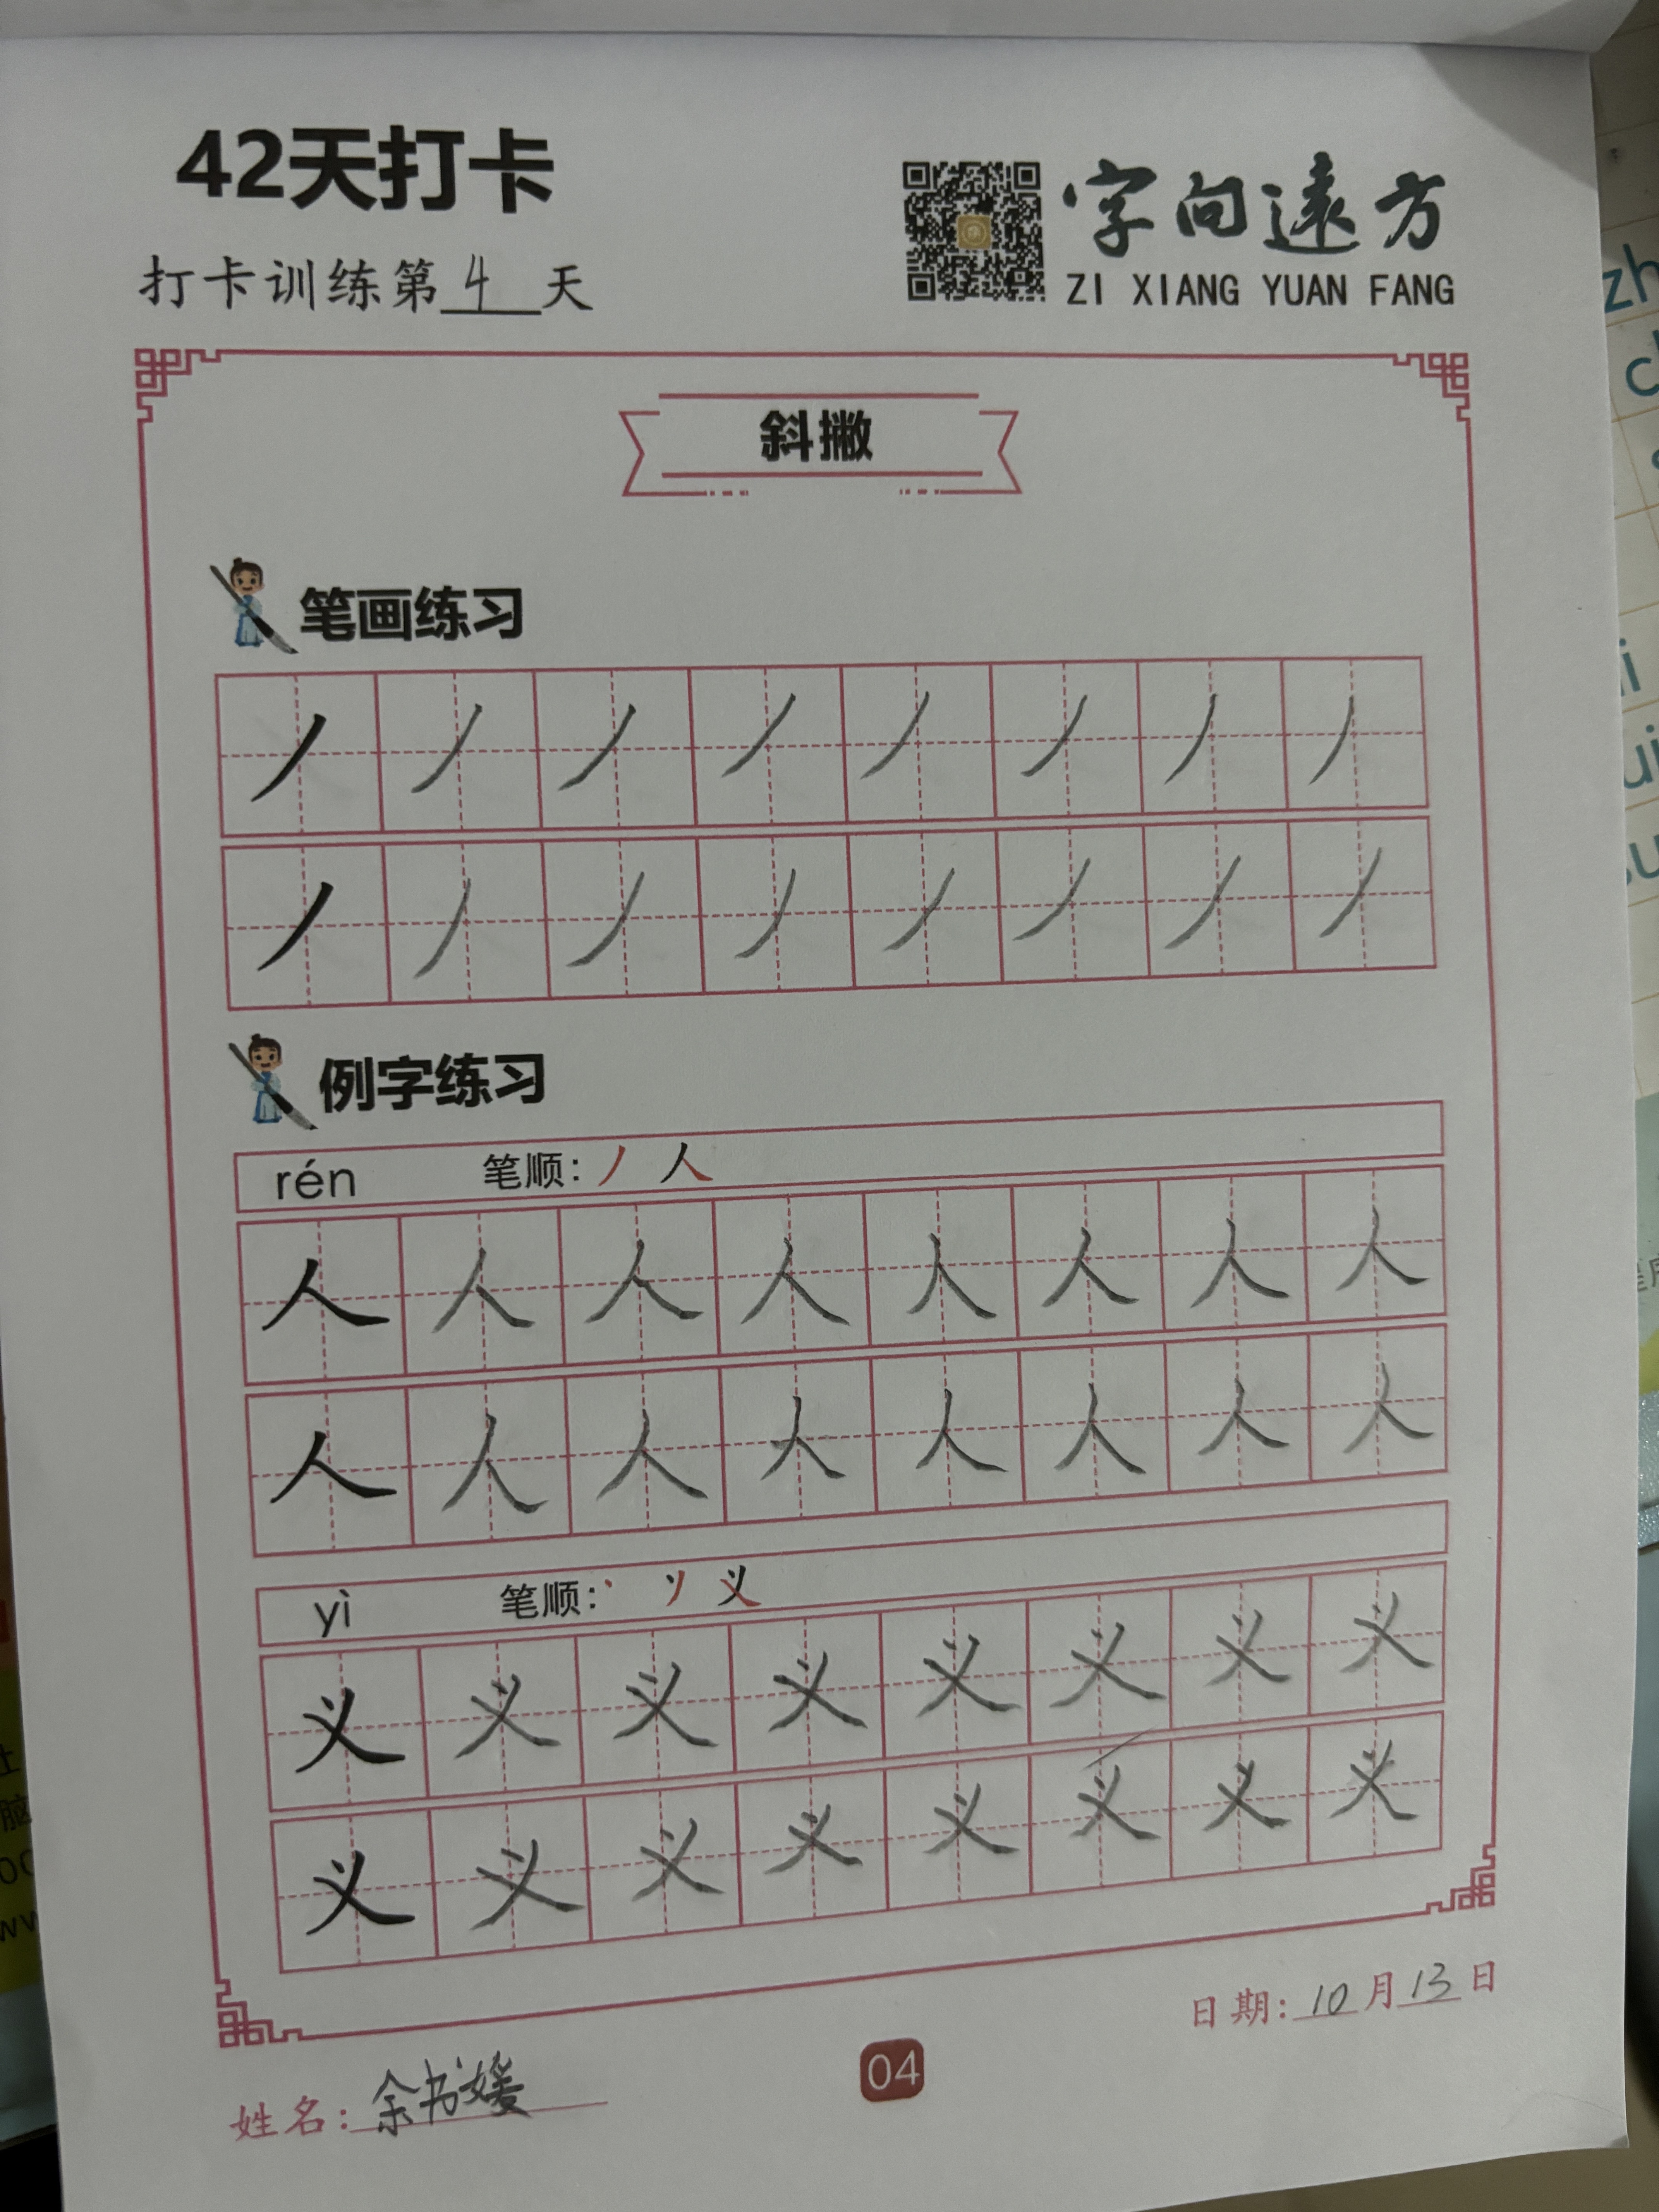 42天打卡
打卡训练第4天
字向遠方
ZI XIANG YUAN FANG
斜撇
笔画练习
丿丿丿丿丿丿丿丿
丿丿丿丿丿丿丿丿
例字练习
rén 笔顺: 丿 人
人人人人人人人人
人人人人人人人人
yì 笔顺: 丶 ソ 义
义义义义义义义义
义义义义义义义义
日期: 10月13日
04
姓名: 余书媛